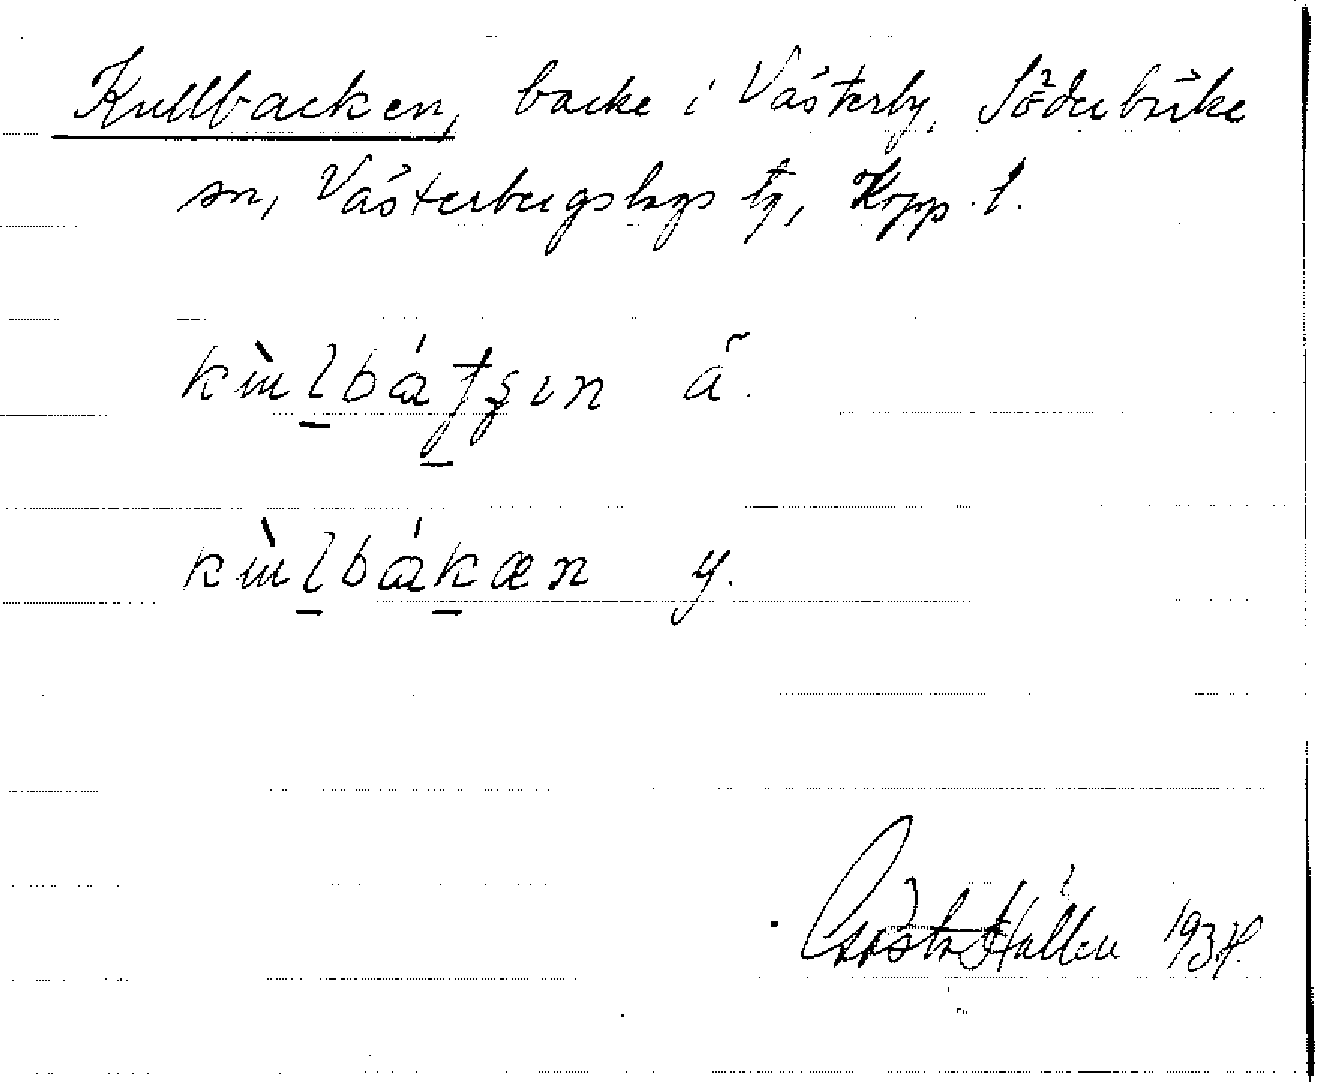 Kullbacken, backe i Västerby, Söderbärke
sn, Västerbergslags tg, Kopp. l.
kùlbátʂın ä.
kùlbákæn y.
Gösta Hallén 1934.